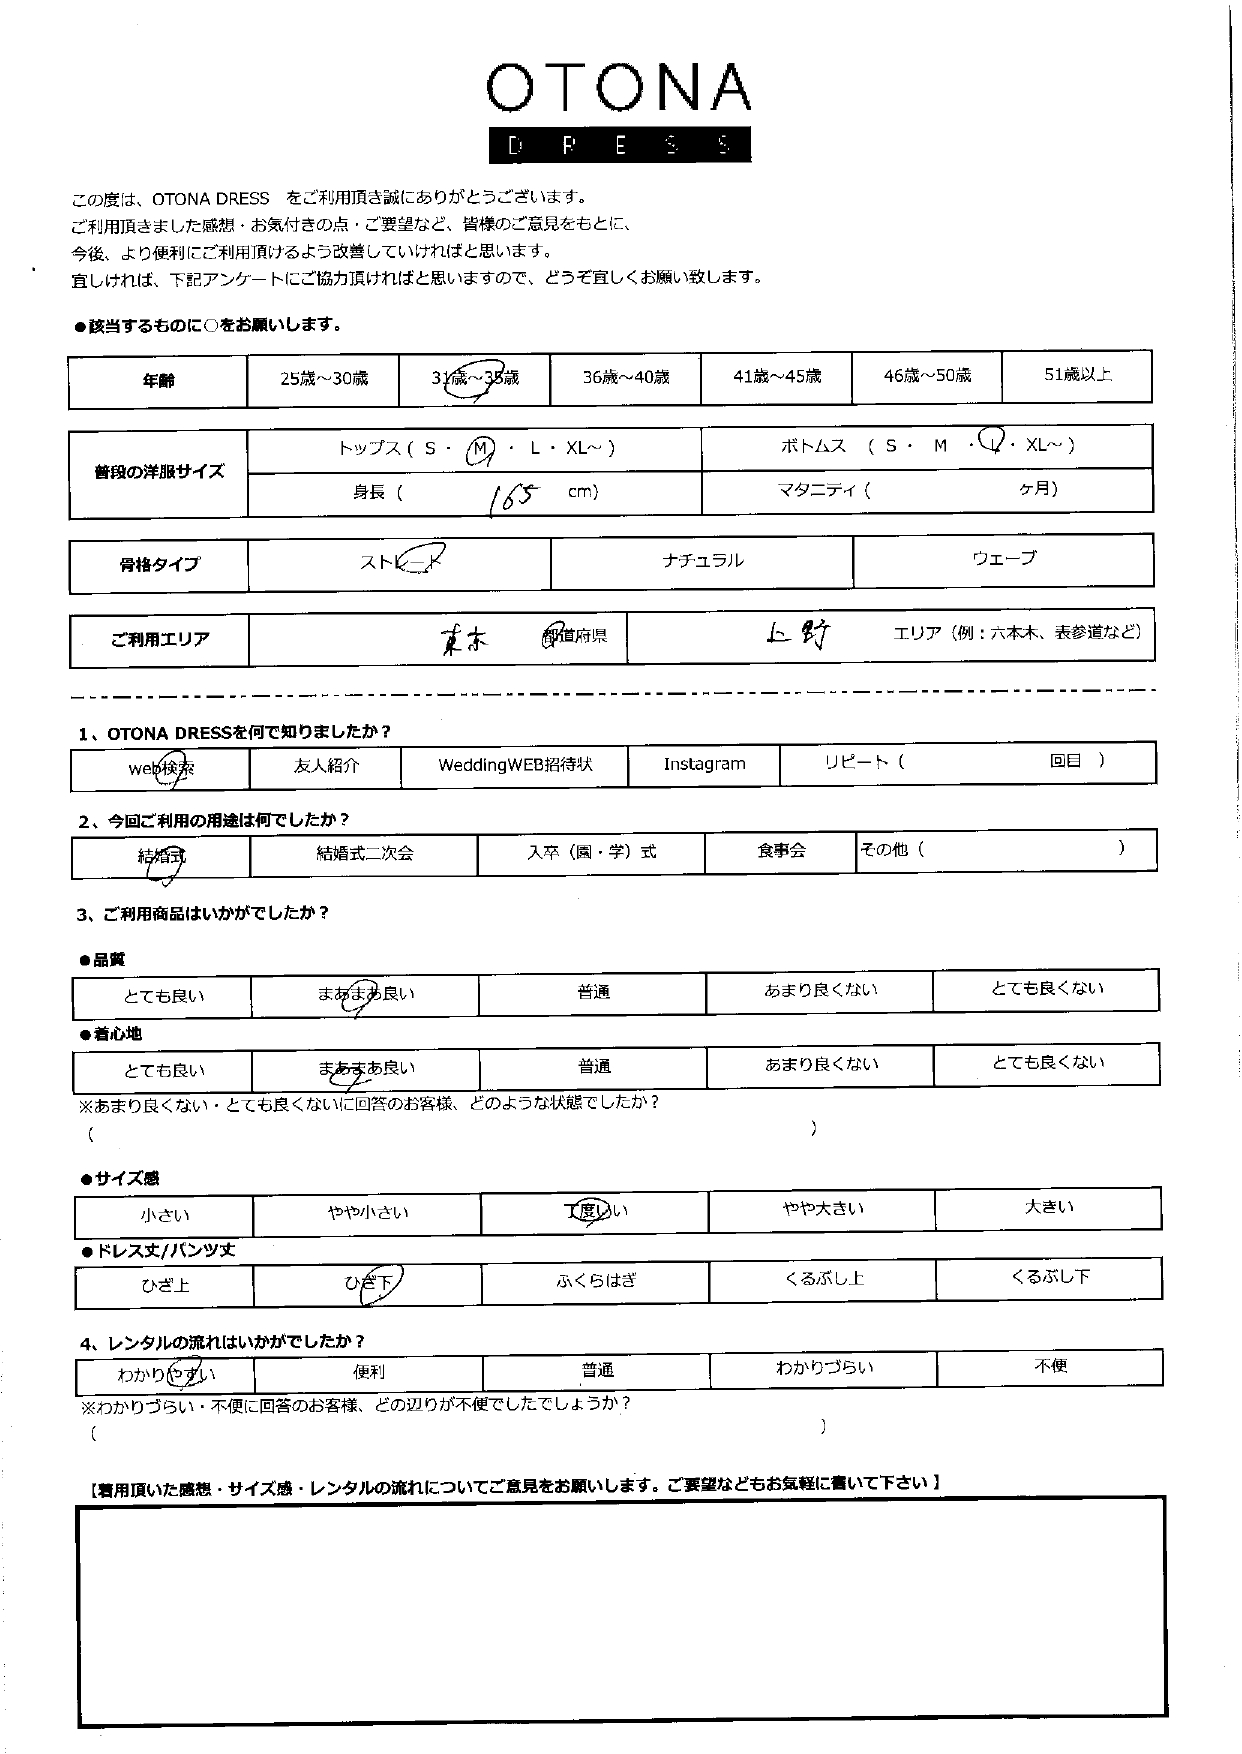 OTONA
DRESS
この度は、OTONA DRESS　をご利用頂き誠にありがとうございます。
ご利用頂きました感想・お気付きの点・ご要望など、皆様のご意見をもとに、
今後、より便利にご利用頂けるよう改善していければと思います。
宜しければ、下記アンケートにご協力頂ければと思いますので、どうぞ宜しくお願い致します。
●該当するものに○をお願いします。
年齢 25歳～30歳 31歳～35歳 36歳～40歳 41歳～45歳 46歳～50歳 51歳以上
普段の洋服サイズ トップス ( S ・ M ・ L ・ XL～ ) ボトムス ( S ・ M ・ L ・ XL～ )
身長 ( 165 cm) マタニティ ( ケ月)
骨格タイプ ストレート ナチュラル ウェーブ
ご利用エリア 東京 都道府県 上野 エリア（例：六本木、表参道など）
1、OTONA DRESSを何で知りましたか？
web検索 友人紹介 WeddingWEB招待状 Instagram リピート ( 回目 )
2、今回ご利用の用途は何でしたか？
結婚式 結婚式二次会 入卒（園・学）式 食事会 その他 ( )
3、ご利用商品はいかがでしたか？
●品質
とても良い まあまあ良い 普通 あまり良くない とても良くない
●着心地
とても良い まあまあ良い 普通 あまり良くない とても良くない
※あまり良くない・とても良くないに回答のお客様、どのような状態でしたか？
( )
●サイズ感
小さい やや小さい 丁度いい やや大きい 大きい
●ドレス丈/パンツ丈
ひざ上 ひざ下 ふくらはぎ くるぶし上 くるぶし下
4、レンタルの流れはいかがでしたか？
わかりやすい 便利 普通 わかりづらい 不便
※わかりづらい・不便に回答のお客様、どの辺りが不便でしたでしょうか？
( )
【着用頂いた感想・サイズ感・レンタルの流れについてご意見をお願いします。ご要望などもお気軽に書いて下さい】